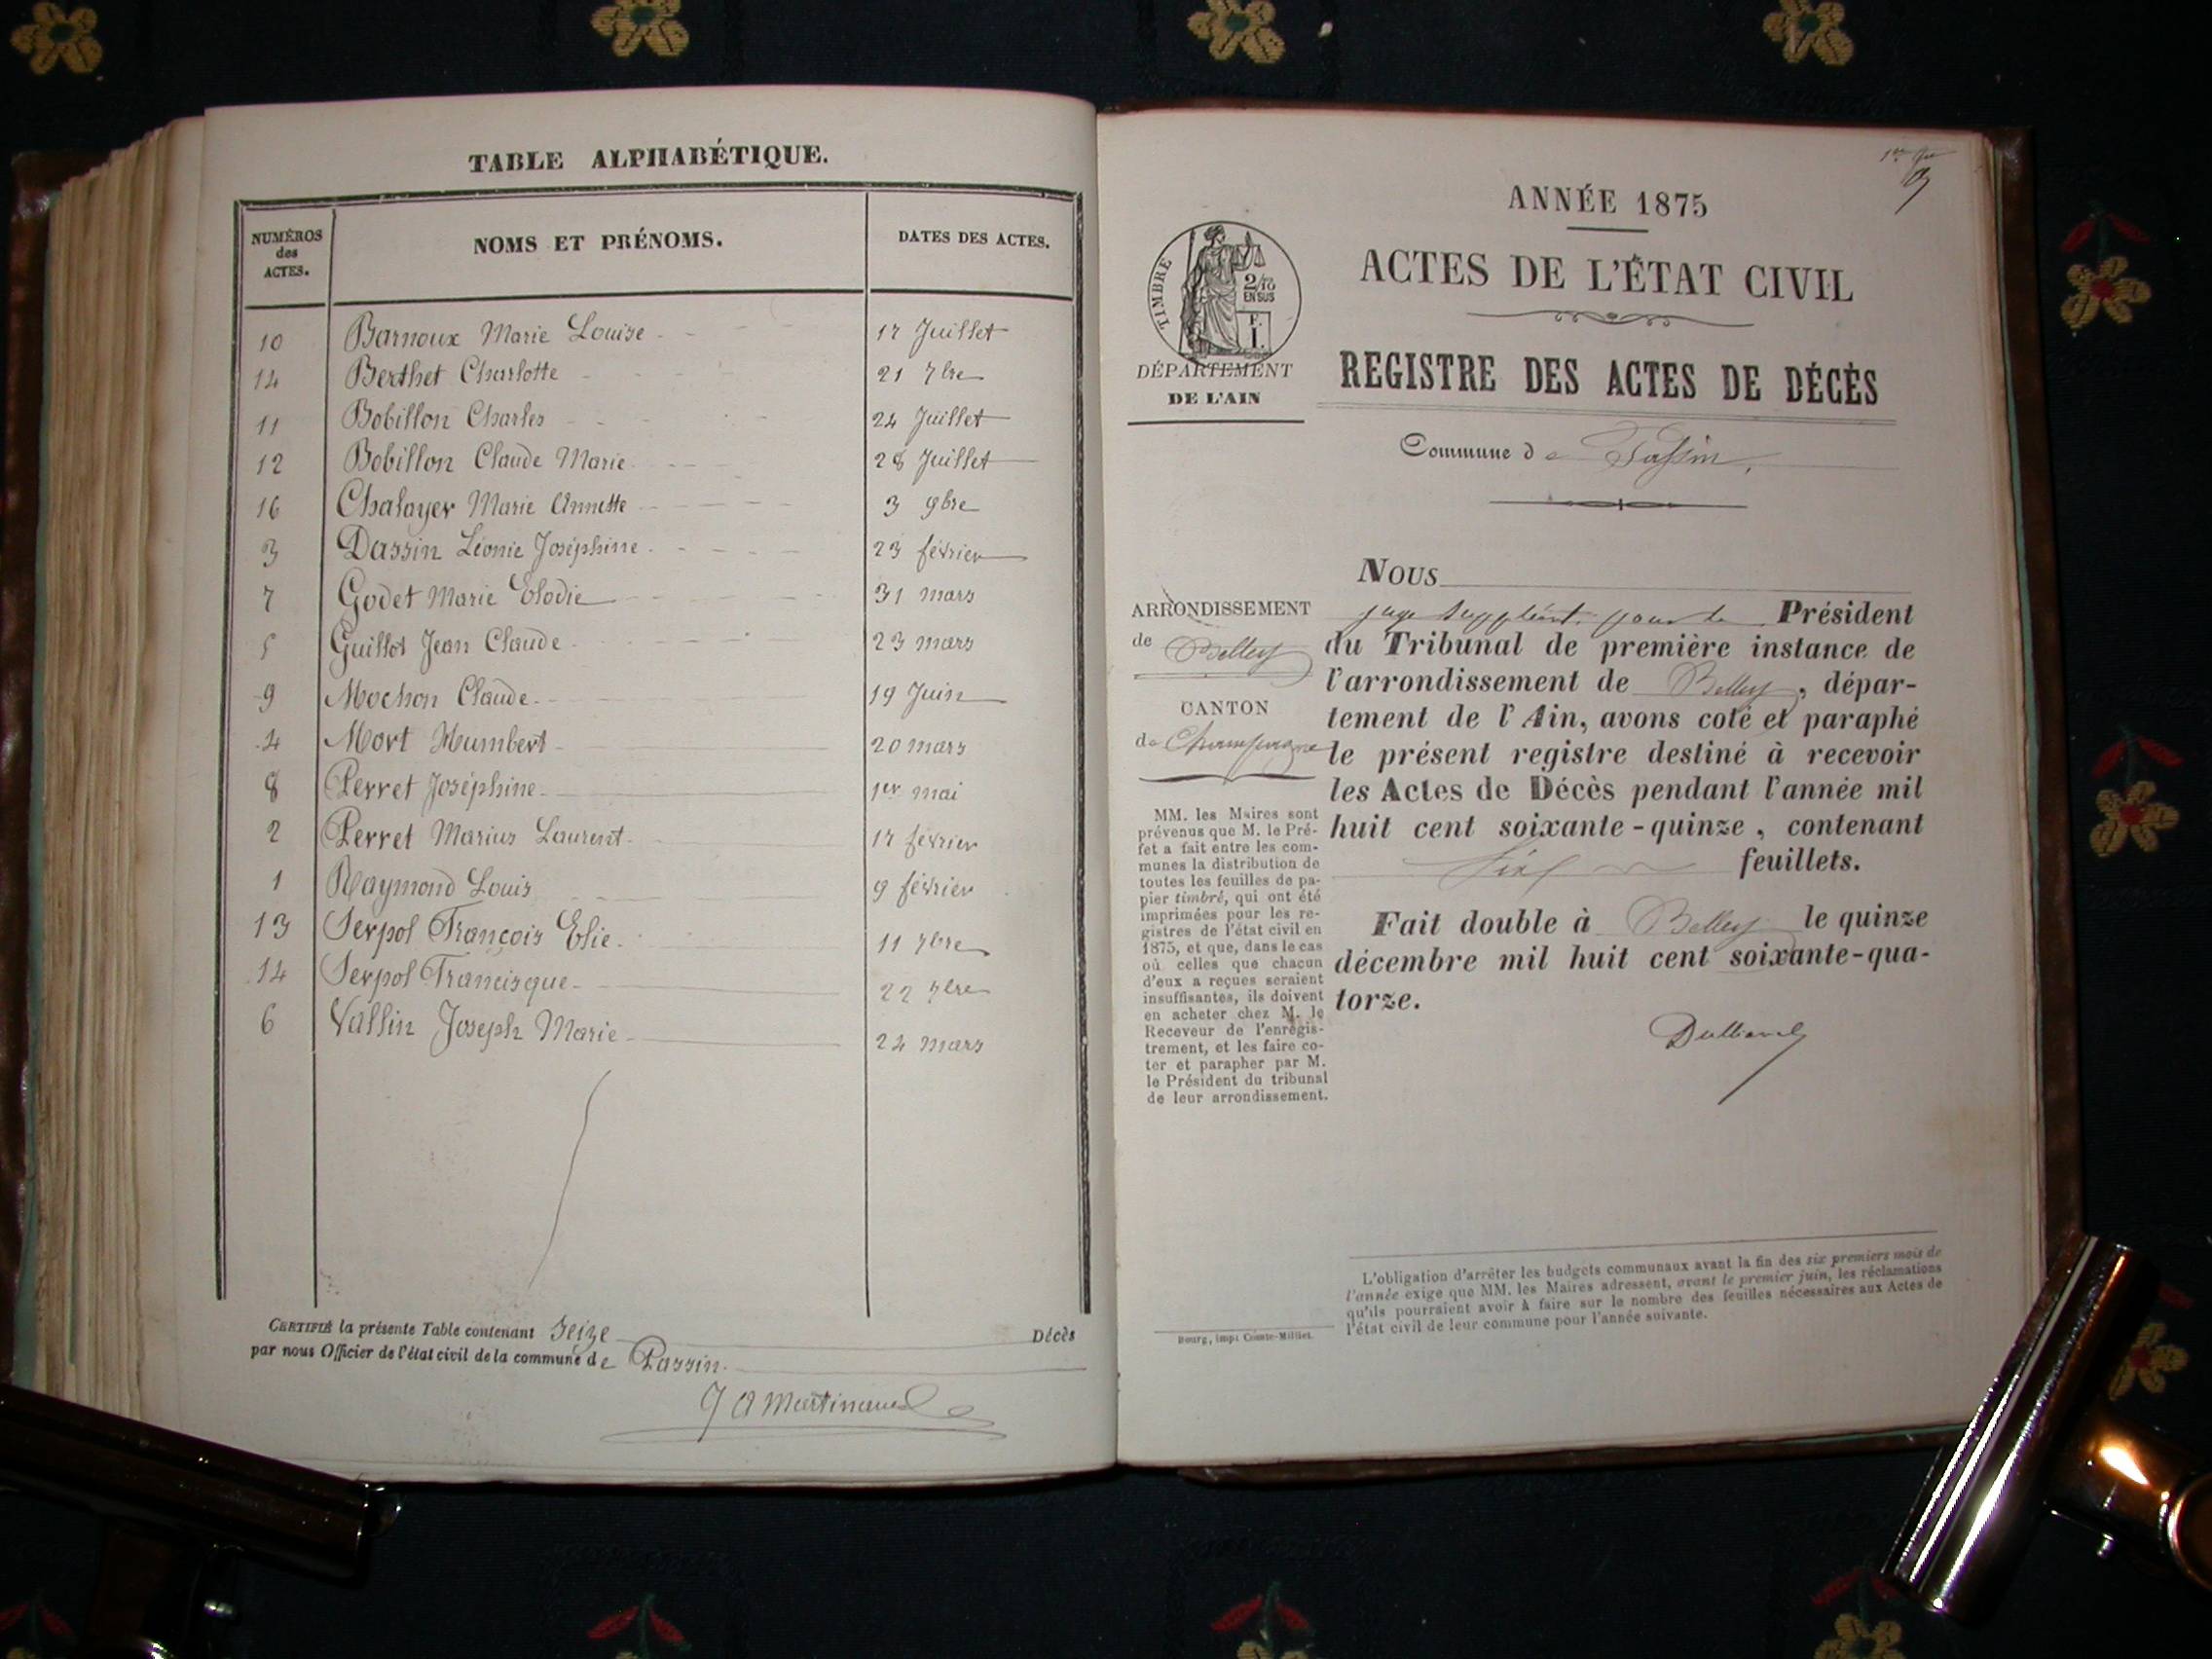 TABLE ALPHABÉTIQUE.
NUMÉROS des ACTES. NOMS ET PRÉNOMS. DATES DES ACTES.
10 Barnoux Marie Louise 17 Juillet
14 Berthet Charlotte 21 7bre
11 Bobillon Charles 24 Juillet
12 Bobillon Claude Marie 28 Juillet
16 Chalayer Marie Annette 3 9bre
3 Dassin Léonie Joséphine 23 février
7 Godet Marie Elodie 31 mars
5 Guillot Jean Claude 23 mars
9 Mochon Claude 19 Juin
4 Mort Humbert 20 mars
8 Perret Joséphine 1er mai
2 Perret Marius Laurent 17 février
1 Raymond Louis 9 février
13 Serpol François Elie 11 7bre
14 Serpol Francisque 22 7bre
6 Vallin Joseph Marie 24 mars
CERTIFIÉ la présente Table contenant Seize Décès
par nous Officier de l'état civil de la commune de Passin.
J A Martinand
ANNÉE 1875
ACTES DE L'ÉTAT CIVIL
TIMBRE
2/10
EN SUS
F.
1.
DÉPARTEMENT
DE L'AIN
REGISTRE DES ACTES DE DÉCÈS
Commune de Passin,
ARRONDISSEMENT
de Belley
CANTON
de Champagne
MM. les Maires sont
prévenus que M. le Pré-
fet a fait entre les com-
munes la distribution de
toutes les feuilles de pa-
pier timbré, qui ont été
imprimées pour les re-
gistres de l'état civil en
1875, et que, dans le cas
où celles que chacun
d'eux a reçues seraient
insuffisantes, ils doivent
en acheter chez M. le
Receveur de l'enregis-
trement, et les faire co-
ter et parapher par M.
le Président du tribunal
de leur arrondissement.
NOUS
juge suppléant pour le Président
du Tribunal de première instance de
l'arrondissement de Belley, dépar-
tement de l'Ain, avons coté et paraphé
le présent registre destiné à recevoir
les Actes de Décès pendant l'année mil
huit cent soixante-quinze, contenant
feuillets.
Fait double à Belley le quinze
décembre mil huit cent soixante-qua-
torze.
L'obligation d'arrêter les budgets communaux avant la fin des six premiers mois de
l'année exige que MM. les Maires adressent, avant le premier juin, les réclamations
qu'ils pourraient avoir à faire sur le nombre des feuilles nécessaires aux Actes de
l'état civil de leur commune pour l'année suivante.
Bourg, imp. Comte-Milliet.